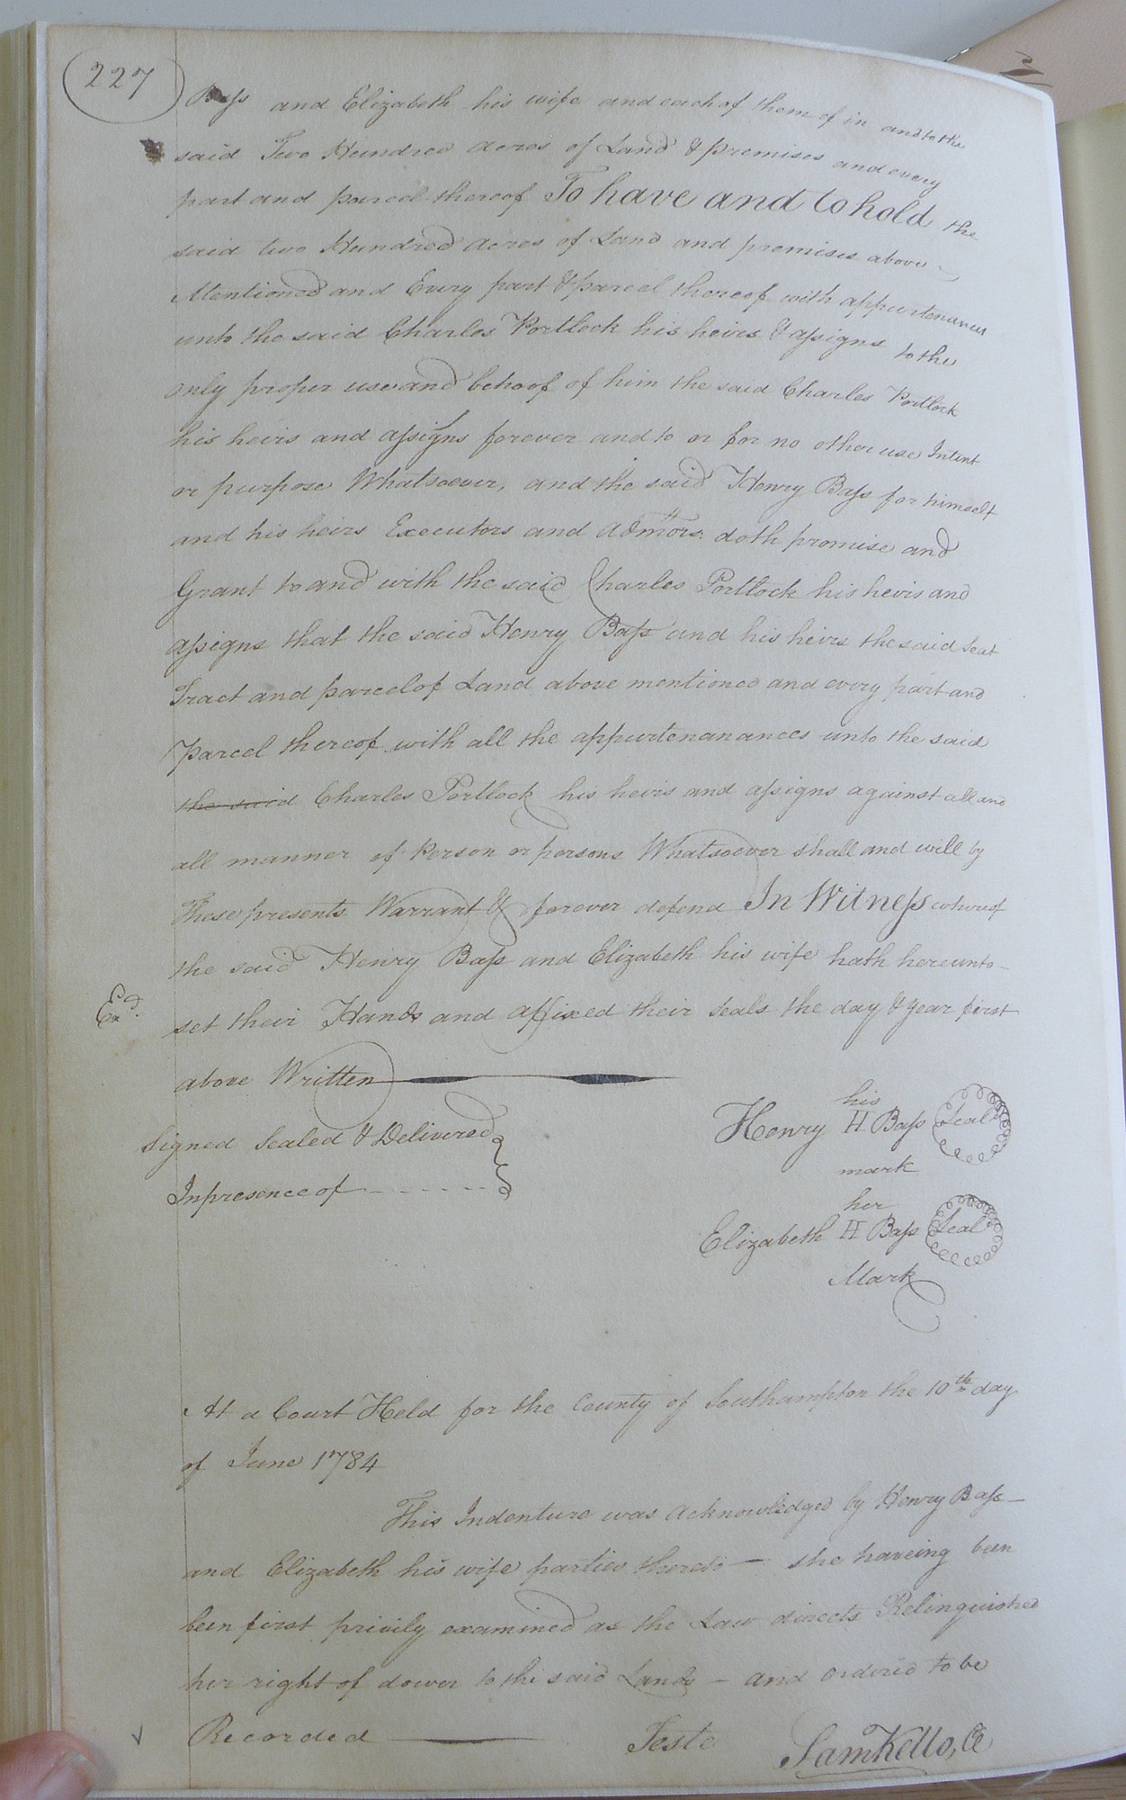 227
Bass and Elizabeth his wife and each of them of in and to the
said Two Hundred Acres of Land & premises and every
part and parcel thereof To have and to hold the
said two Hundred Acres of Land and premises above
Mentioned and Every part & parcel thereof with appurtenances
unto the said Charles Portlock his heirs & assigns to the
only proper use and behoof of him the said Charles Portlock
his heirs and assigns forever and to or for no other use Intent
or purpose Whatsoever, and the said Henry Bass for himself
and his heirs Executors and admors. doth promise and
Grant to and with the said Charles Portlock his heirs and
assigns that the said Henry Bass and his heirs the said Seat
Tract and parcel of Land above mentioned and every part and
Parcel thereof with all the appurtenanances unto the said
the said Charles Portlock his heirs and assigns against all and
all manner of Person or persons Whatsoever shall and will by
These presents Warrant & forever defend In Witness whereof
the said Henry Bass and Elizabeth his wife hath hereunto
Exd.
set their Hands and affixed their Seals the day & year first
above Written
Signed Sealed & Delivered
In presence of
his
Henry H Bass Seal
mark
her
Elizabeth H Bass Seal
Mark
At a Court Held for the County of Southampton the 10th day
of June 1784
This Indenture was Acknowledged by Henry Bass
and Elizabeth his wife parties thereto — she haveing been
been first privily examined as the Law directs Relinquished
her right of dower to the said Lands — and ordered to be
Recorded Teste
Sam Kello, CC